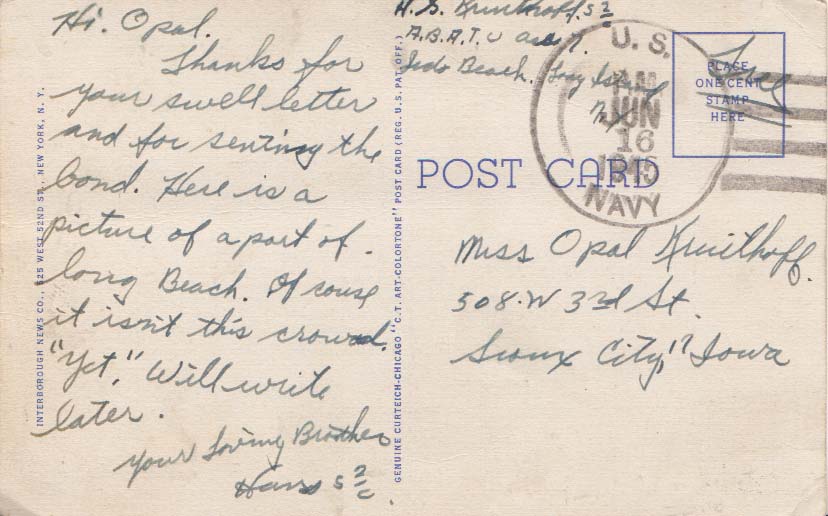 Hi. Opal.
Thanks for
your swell letter
and for senting the
bond. Here is a
picture of a part of
long Beach. Of couse
it isn't this crowed.
"Yet." Will write
later.
your Loving Brother
Hans S 2/c
INTERBOROUGH NEWS CO., 225 WEST 52ND ST., NEW YORK, N. Y.
GENUINE CURTEICH-CHICAGO "C.T. ART-COLORTONE" POST CARD (REG. U.S. PAT. OFF.)
H. G. Kruithoff. S 2/c
A.B.A.T.U
Lido Beach. Long
N.Y.
U. S.
AM
JUN
16
1945
NAVY
Free
PLACE
ONE CENT
STAMP
HERE
POST CARD
Miss Opal Kruithoff.
508.W 3rd St.
Sioux City, 17 Iowa